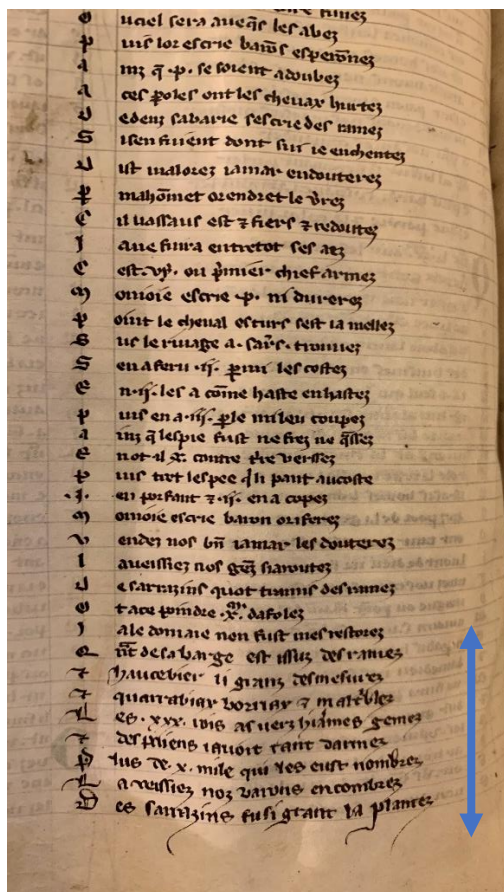 O uciel sera aueqs les abez
P uis lor escrie barōs esperonez
A inz q̄ .p. se soient adoubez
A ces p̄oles ont les cheuax hurtez
U edeus sabarie sescrie des
S isen fuient dont sui ie enchentez
U ist malorez iamar endouterez
P mahōmet orendret le v̄rez
C il uassaus est ⁊ fiers ⁊ redoutez
I aue fuira entretot ses aez
C est ou p̄mier chief armez
M onioie escrie .p. ni durerez
P oint le cheual esturs sest ia mellez
S us le riuage a . sarˢ . trouuez
S en a feru .ij. parmi les costez
E n .ij. les a cōme haste enhastez
P uis en a .iij. p̄le milieu coupez
A inz q̄ lespie fust ne frez ne q̄ssez
E not il .x. contre tr̄e uersez
P uis tret lespee q̄li pant aucoste
.I. en porfant ⁊ .ij. en a copez
M onioie escrie baron or iferez
V endez nos bn̄ iamar les douterez
I aueissiez nos gēz
U e sarrazins quot uenus des
O tace poindre .x. dafolez
I ale domaie non fust mes restorez
Q de sa barge est issuz des ranies
⁊ haucebier li granz desmesurez
⁊ quarrabiax ⁊
L es .xxx. rois as uerz hiaumes gemez
⁊ des paiens i auoit tant darmez
P lus de .x. mile qui les eust nombrez
L a ueissiez noz barons encombrez
D es sarrazins fu si grant la plantez